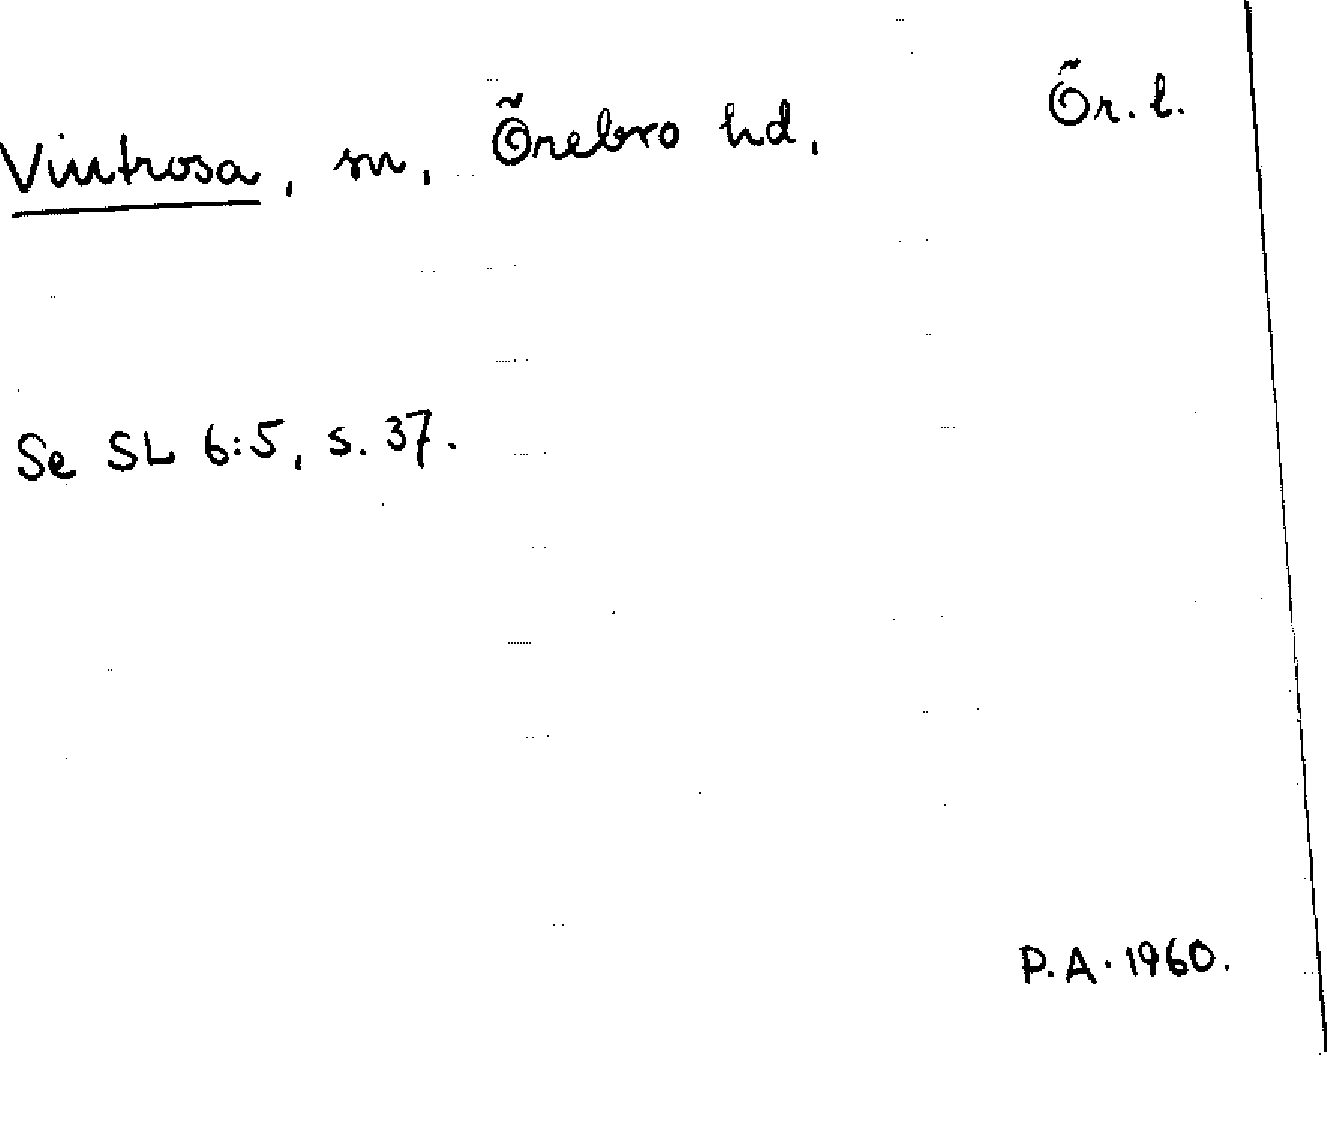 Vintrosa, sn, Örebro hd, Ör. l.
Se SL 6:5, s. 37.
P.A. 1960.